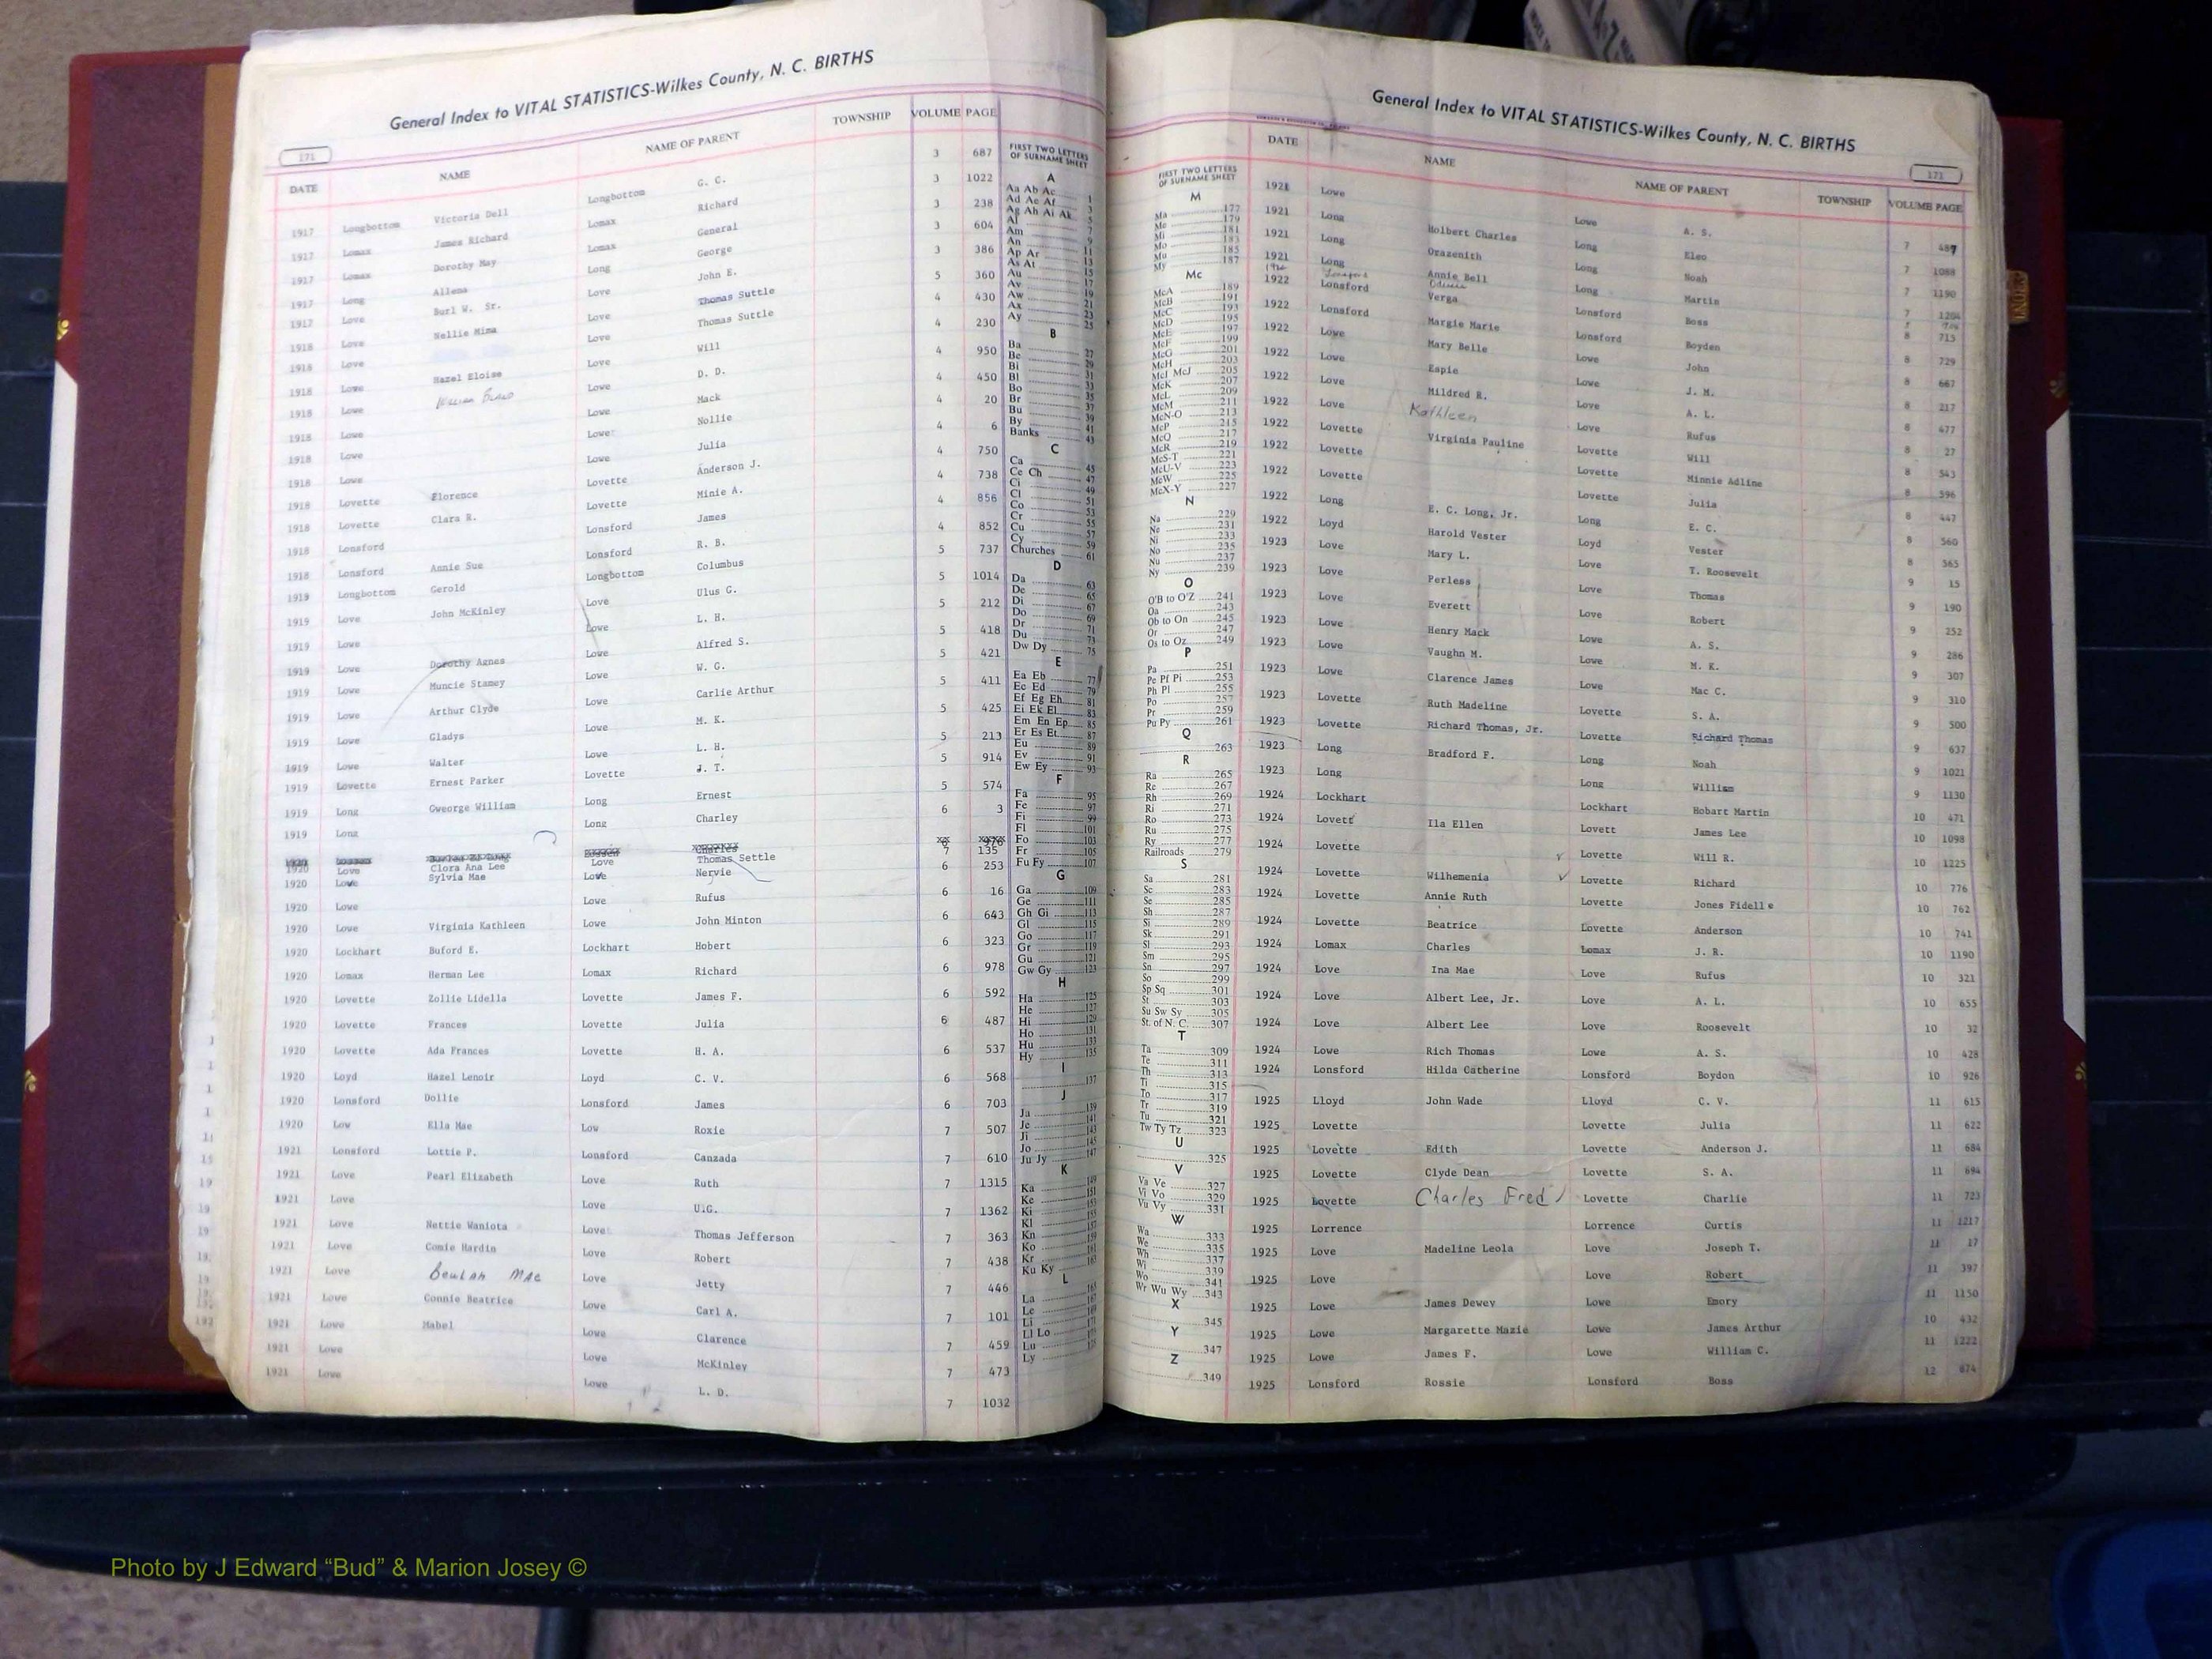 General Index to VITAL STATISTICS-Wilkes County, N. C. BIRTHS
171
DATE NAME NAME OF PARENT TOWNSHIP VOLUME PAGE
1917 Longbottom Victoria Dell Longbottom G. C. 3 687
1917 Lomax James Richard Lomax Richard 3 1022
1917 Lomax Dorothy May Lomax General 3 238
1917 Long Allena Long George 3 604
1917 Love Burl W. Sr. Love John E. 3 386
1918 Love Nellie Mima Love Thomas Suttle 5 360
1918 Love Love Thomas Suttle 4 430
1918 Lowe Hazel Eloise Love Will 4 230
1918 Lowe William Bland Lowe D. D. 4 950
1918 Lowe Lowe Mack 4 450
1918 Lowe Lowe Nollie 4 20
1918 Lowe Lowe Julia 4 6
1918 Lovette Florence Lovette Anderson J. 4 750
1918 Lovette Clara R. Lovette Minie A. 4 738
1918 Lonsford Lonsford James 4 856
1918 Lonsford Annie Sue Lonsford R. B. 4 852
1919 Longbottom Gerold Longbottom Columbus 5 737
1919 Love John McKinley Love Ulus G. 5 1014
1919 Lowe Love L. H. 5 212
1919 Lowe Dorothy Agnes Lowe Alfred S. 5 418
1919 Lowe Muncie Stamey Lowe W. G. 5 421
1919 Lowe Arthur Clyde Lowe Carlie Arthur 5 411
1919 Lowe Gladys Lowe M. K. 5 425
1919 Lowe Walter Lowe L. H. 5 213
1919 Lovette Ernest Parker Lovette J. T. 5 914
1919 Long Gweorge William Long Ernest 5 574
1919 Long Long Charley 6 3
1920 Love Clora Ana Lee Love Thomas Settle 7 135
1920 Love Sylvia Mae Love Nervie 6 253
1920 Lowe Lowe Rufus 6 16
1920 Lowe Virginia Kathleen Lowe John Minton 6 643
1920 Lockhart Buford E. Lockhart Hobert 6 323
1920 Lomax Herman Lee Lomax Richard 6 978
1920 Lovette Zollie Lidella Lovette James F. 6 592
1920 Lovette Frances Lovette Julia 6 487
1920 Lovette Ada Frances Lovette H. A. 6 537
1920 Loyd Hazel Lenoir Loyd C. V. 6 568
1920 Lonsford Dollie Lonsford James 6 703
1920 Low Ella Mae Low Roxie 7 507
1921 Lonsford Lottie P. Lonsford Canzada 7 610
1921 Love Pearl Elizabeth Love Ruth 7 1315
1921 Love Love U.G. 7 1362
1921 Love Nettie Waniota Love Thomas Jefferson 7 363
1921 Love Comie Hardin Love Robert 7 438
1921 Love Beulah Mae Love Jetty 7 446
1921 Lowe Connie Beatrice Lowe Carl A. 7 101
1921 Lowe Mabel Lowe Clarence 7 459
1921 Lowe Lowe McKinley 7 473
1921 Lowe Lowe L. D. 7 1032
FIRST TWO LETTERS
OF SURNAME SHEET
A
Aa Ab Ac 1
Ad Ae Af 3
Ag Ah Ai Ak 5
Al 7
Am 9
An 11
Ap Ar 13
As At 15
Au 17
Av 19
Aw 21
Ax 23
Ay 25
B
Ba 27
Be 29
Bi 31
Bl 33
Bo 35
Br 37
Bu 39
By 41
Banks 43
C
Ca 45
Ce Ch 47
Ci 49
Cl 51
Co 53
Cr 55
Cu 57
Cy 59
Churches 61
D
Da 63
De 65
Di 67
Do 69
Dr 71
Du 73
Dw Dy 75
E
Ea Eb 77
Ec Ed 79
Ef Eg Eh 81
Ei Ek El 83
Em En Ep 85
Er Es Et 87
Eu 89
Ev 91
Ew Ey 93
F
Fa 95
Fe 97
Fi 99
Fl 101
Fo 103
Fr 105
Fu Fy 107
G
Ga 109
Ge 111
Gh Gi 113
Gl 115
Go 117
Gr 119
Gu 121
Gw Gy 123
H
Ha 125
He 127
Hi 129
Ho 131
Hu 133
Hy 135
I
137
J
Ja 139
Je 141
Ji 143
Jo 145
Ju Jy 147
K
Ka 149
Ke 151
Ki 153
Kl
Kn
Ko
Kr
Ku Ky
L
La
Le
Li
Ll Lo
Lu
Ly
General Index to VITAL STATISTICS-Wilkes County, N. C. BIRTHS
171
FIRST TWO LETTERS
OF SURNAME SHEET
M
Ma 177
Me 179
Mi 181
Mo 183
Mu 185
My 187
Mc
McA 189
McB 191
McC 193
McD 195
McE 197
McF 199
McG 201
McH 203
McI McJ 205
McK 207
McL 209
McM 211
McN-O 213
McP 215
McQ 217
McR 219
McS-T 221
McU-V 223
McW 225
McX-Y 227
N
Na 229
Ne 231
Ni 233
No 235
Nu 237
Ny 239
O
O'B to O'Z 241
Oa 243
Ob to On 245
Or 247
Os to Oz 249
P
Pa 251
Pe Pf Pi 253
Ph Pl 255
Po 257
Pr 259
Pu Py 261
Q
263
R
Ra 265
Re 267
Rh 269
Ri 271
Ro 273
Ru 275
Ry 277
Railroads 279
S
Sa 281
Sc 283
Se 285
Sh 287
Si 289
Sk 291
Sl 293
Sm 295
Sn 297
So 299
Sp Sq 301
St 303
Su Sw Sy 305
St. of N. C. 307
T
Ta 309
Te 311
Th 313
Ti 315
To 317
Tr 319
Tu 321
Tw Ty Tz 323
U
325
V
Va Ve 327
Vi Vo 329
Vu Vy 331
W
Wa 333
We 335
Wh 337
Wi 339
Wo 341
Wr Wu Wy 343
X
345
Y
347
Z
349
DATE NAME NAME OF PARENT TOWNSHIP VOLUME PAGE
1921 Lowe Holbert Charles Lowe A. S. 7 487
1921 Long Orazenith Long Eleo 7 1088
1921 Long Annie Bell Long Noah 7 1190
1921 Long Verga Long Martin 7 1204
1922 Lonsford Margie Marie Lonsford Boss 8 715
1922 Lonsford Mary Belle Lonsford Boyden 8 729
1922 Lowe Espie Lowe John 8 667
1922 Lowe Mildred R. Lowe J. M. 8 217
1922 Love Kathleen Love A. L. 8 477
1922 Love Virginia Pauline Love Rufus 8 27
1922 Lovette Lovette Will 8 543
1922 Lovette Lovette Minnie Adline 8 596
1922 Lovette Lovette Julia 8 447
1922 Long E. C. Long, Jr. Long E. C. 8 560
1922 Loyd Harold Vester Loyd Vester 8 565
1923 Love Mary L. Love T. Roosevelt 9 15
1923 Love Perless Love Thomas 9 190
1923 Love Everett Love Robert 9 252
1923 Lowe Henry Mack Lowe A. S. 9 286
1923 Lowe Vaughn M. Lowe M. K. 9 307
1923 Lowe Clarence James Lowe Mac C. 9 310
1923 Lovette Ruth Madeline Lovette S. A. 9 500
1923 Lovette Richard Thomas, Jr. Lovette Richard Thomas 9 637
1923 Long Bradford F. Long Noah 9 1021
1923 Long Long William 9 1130
1924 Lockhart Lockhart Hobart Martin 10 471
1924 Lovett Ila Ellen Lovett James Lee 10 1098
1924 Lovette Lovette Will R. 10 1225
1924 Lovette Wilhemenia Lovette Richard 10 776
1924 Lovette Annie Ruth Lovette Jones Fidelle 10 762
1924 Lovette Beatrice Lovette Anderson 10 741
1924 Lomax Charles Lomax J. R. 10 1190
1924 Love Ina Mae Love Rufus 10 321
1924 Love Albert Lee, Jr. Love A. L. 10 655
1924 Love Albert Lee Love Roosevelt 10 32
1924 Lowe Rich Thomas Lowe A. S. 10 428
1924 Lonsford Hilda Catherine Lonsford Boydon 10 926
1925 Lloyd John Wade Lloyd C. V. 11 615
1925 Lovette Lovette Julia 11 622
1925 Lovette Edith Lovette Anderson J. 11 684
1925 Lovette Clyde Dean Lovette S. A. 11 694
1925 Lovette Charles Fred Lovette Charlie 11 723
1925 Lorrence Lorrence Curtis 11 1217
1925 Love Madeline Leola Love Joseph T. 11 17
1925 Love Love Robert 11 397
1925 Lowe James Dewey Lowe Emory 11 1150
1925 Lowe Margarette Mazie Lowe James Arthur 10 432
1925 Lowe James F. Lowe William C. 11 1222
1925 Lonsford Rossie Lonsford Boss 12 874
INDEX
Photo by J Edward “Bud” & Marion Josey ©